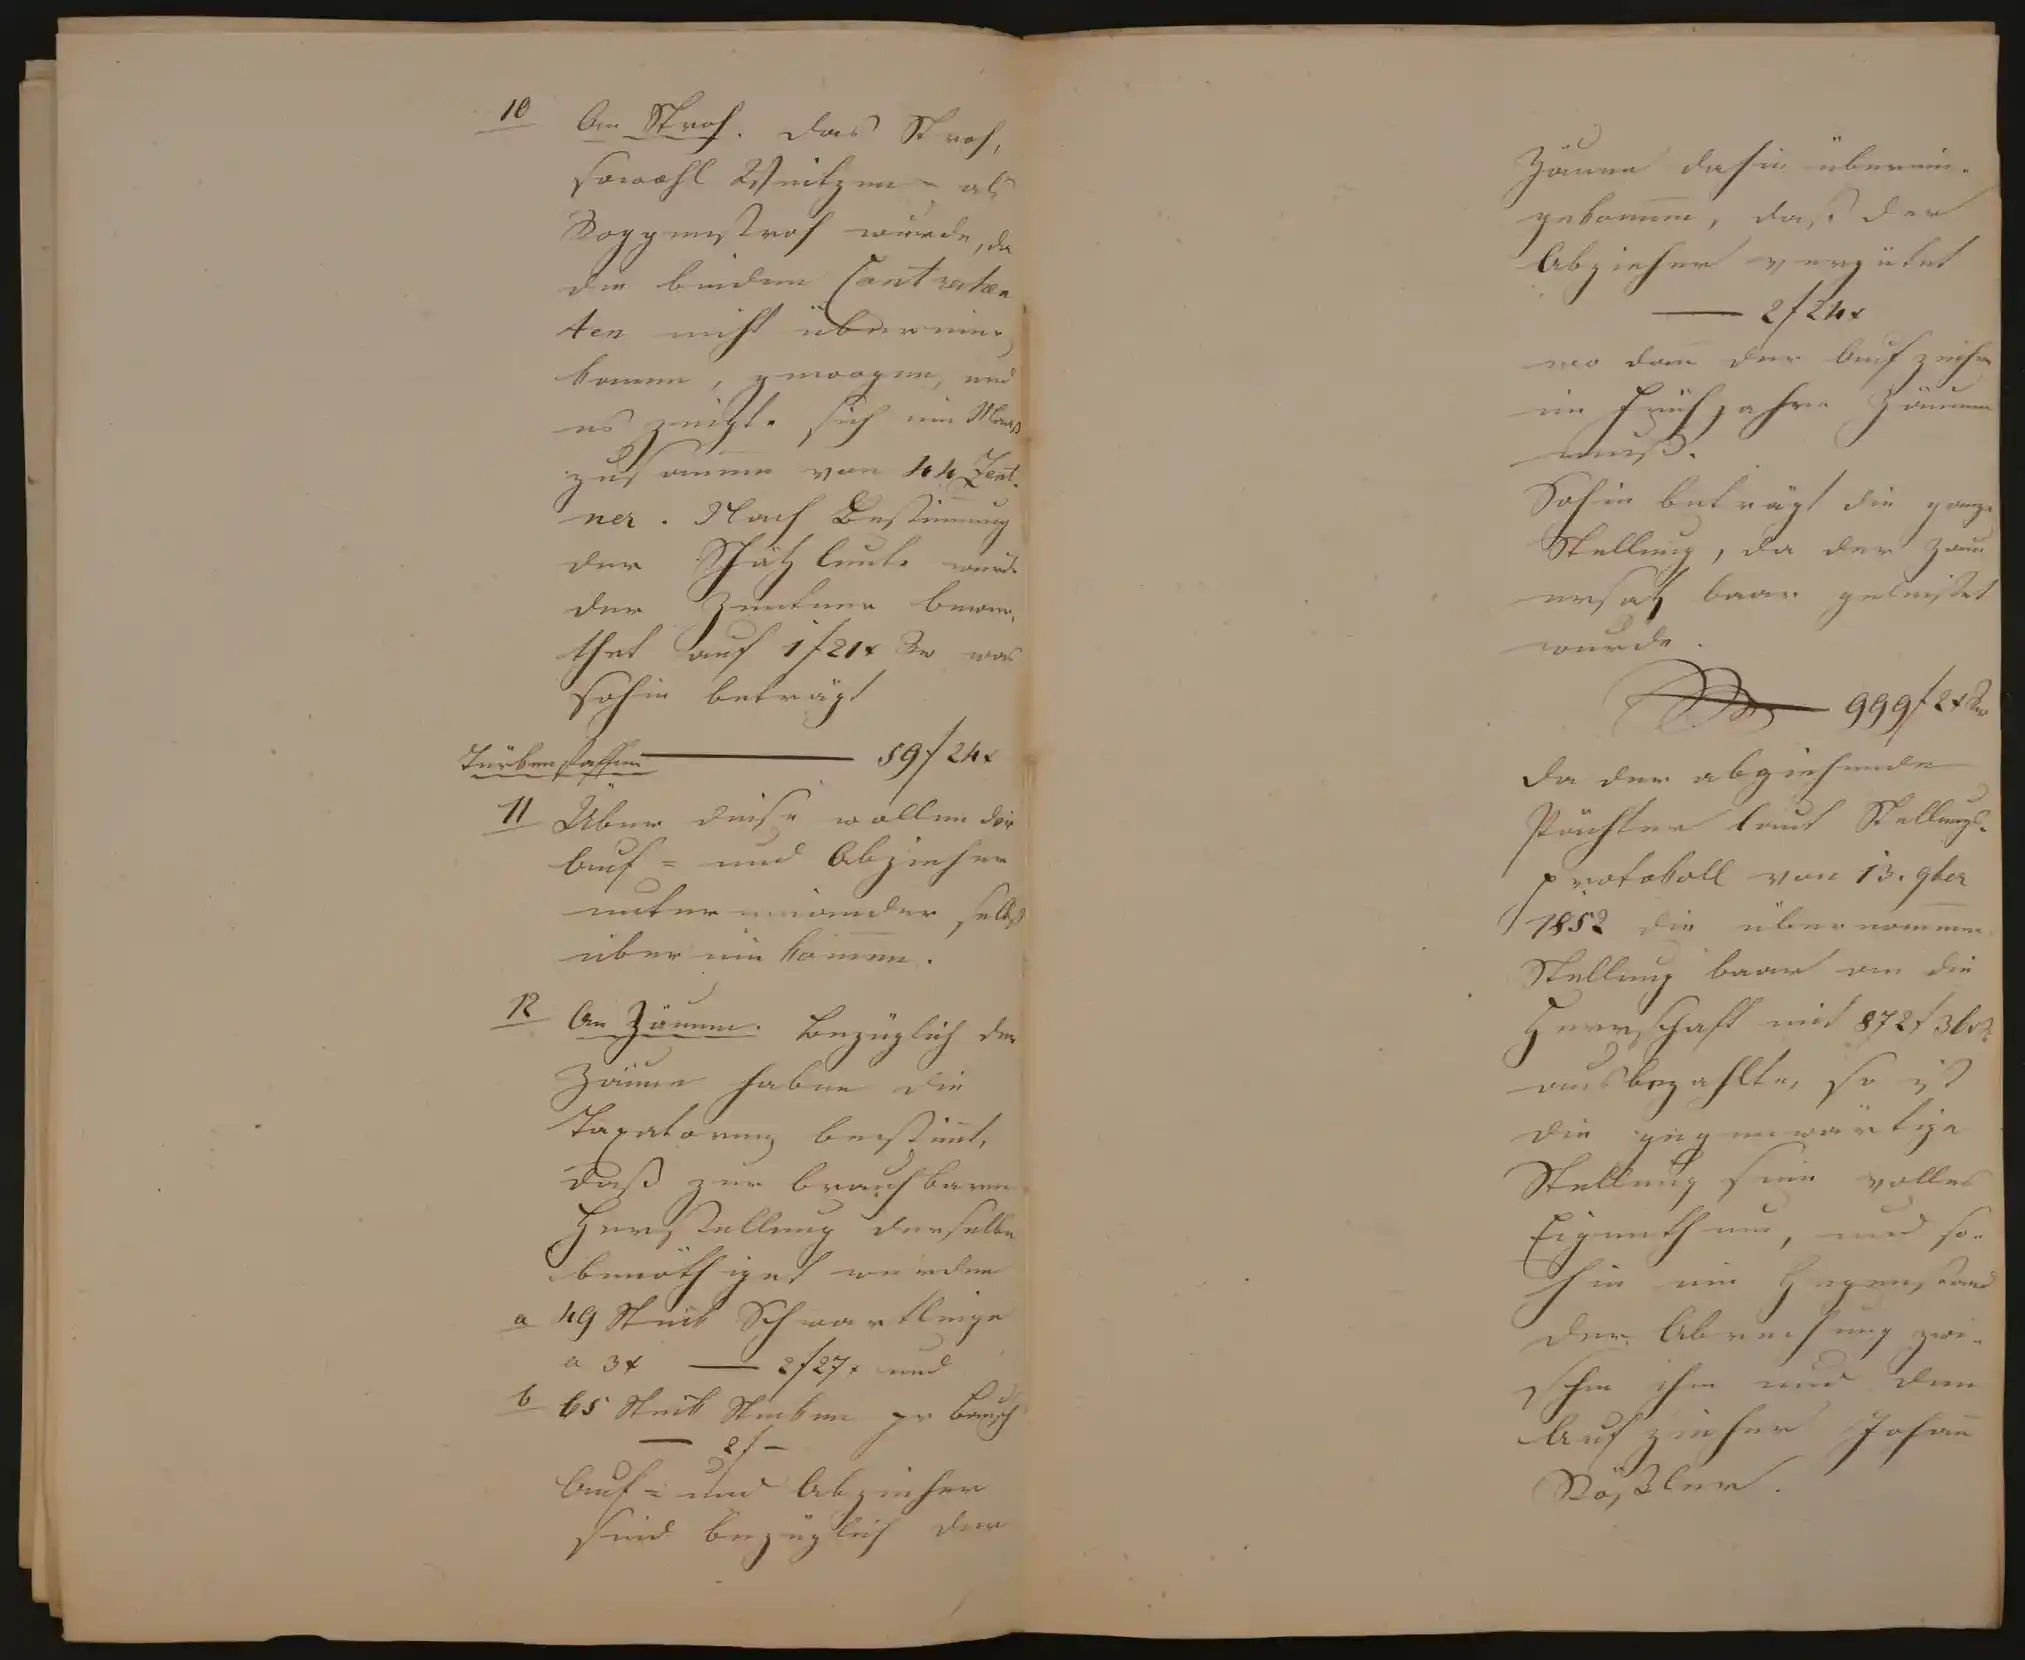 10 An Stroh. Das Stroh,
sowohl Weitzen- als
Roggenstroh wurde, da
die beiden Contrahen
ten nicht überein-
kamen, gewogen, und
es zeigte sich ein Maaß
zusammen von 44 Zent-
ner. Nach Bestimmung
der Schätzleute wurde
der Zentner bewer-
thet auf 1f 21x Rw was
sohin beträgt
— 59f 24x
Türkenstaffeln
11 Über diese wollen die
Auf= und Abzieher
unter einander selbst
übereinkommen.
12 An Zäunen. Bezüglich der
Zäune haben die
Taxatoren bestimmt,
daß zur brauchbaren
Herstellung derselben
benöthiget werden
a 49 Stück Schwartlinge
a 3x — 2f 27x und
b 65 Stück Stecken pr Bausch
— 2f —
Auf= und Abzieher
sind bezüglich der
Zäune dahin überein-
gekommen, daß der
Abzieher vergütet
— 2f 24x
wo dann der Aufzieher
im Frühjahre Zäunen
muß.
Sohin beträgt die ganze
Stellung, da der Zaun
ersatz baar geleistet
wurde.
— 999f 2x Rw
Da der abziehende
Pächter laut Stellungs-
protokoll von 13. 9ber
1852 die übernommene
Stellung baar an die
Herrschaft mit 872f 36x R
ausbezahlte, so ist
die gegenwärtige
Stellung sein volles
Eigenthum, und so-
hin ein Gegenstand
der Abrechnung zwi-
schen ihm und dem
Aufzieher Johann
Rößler.